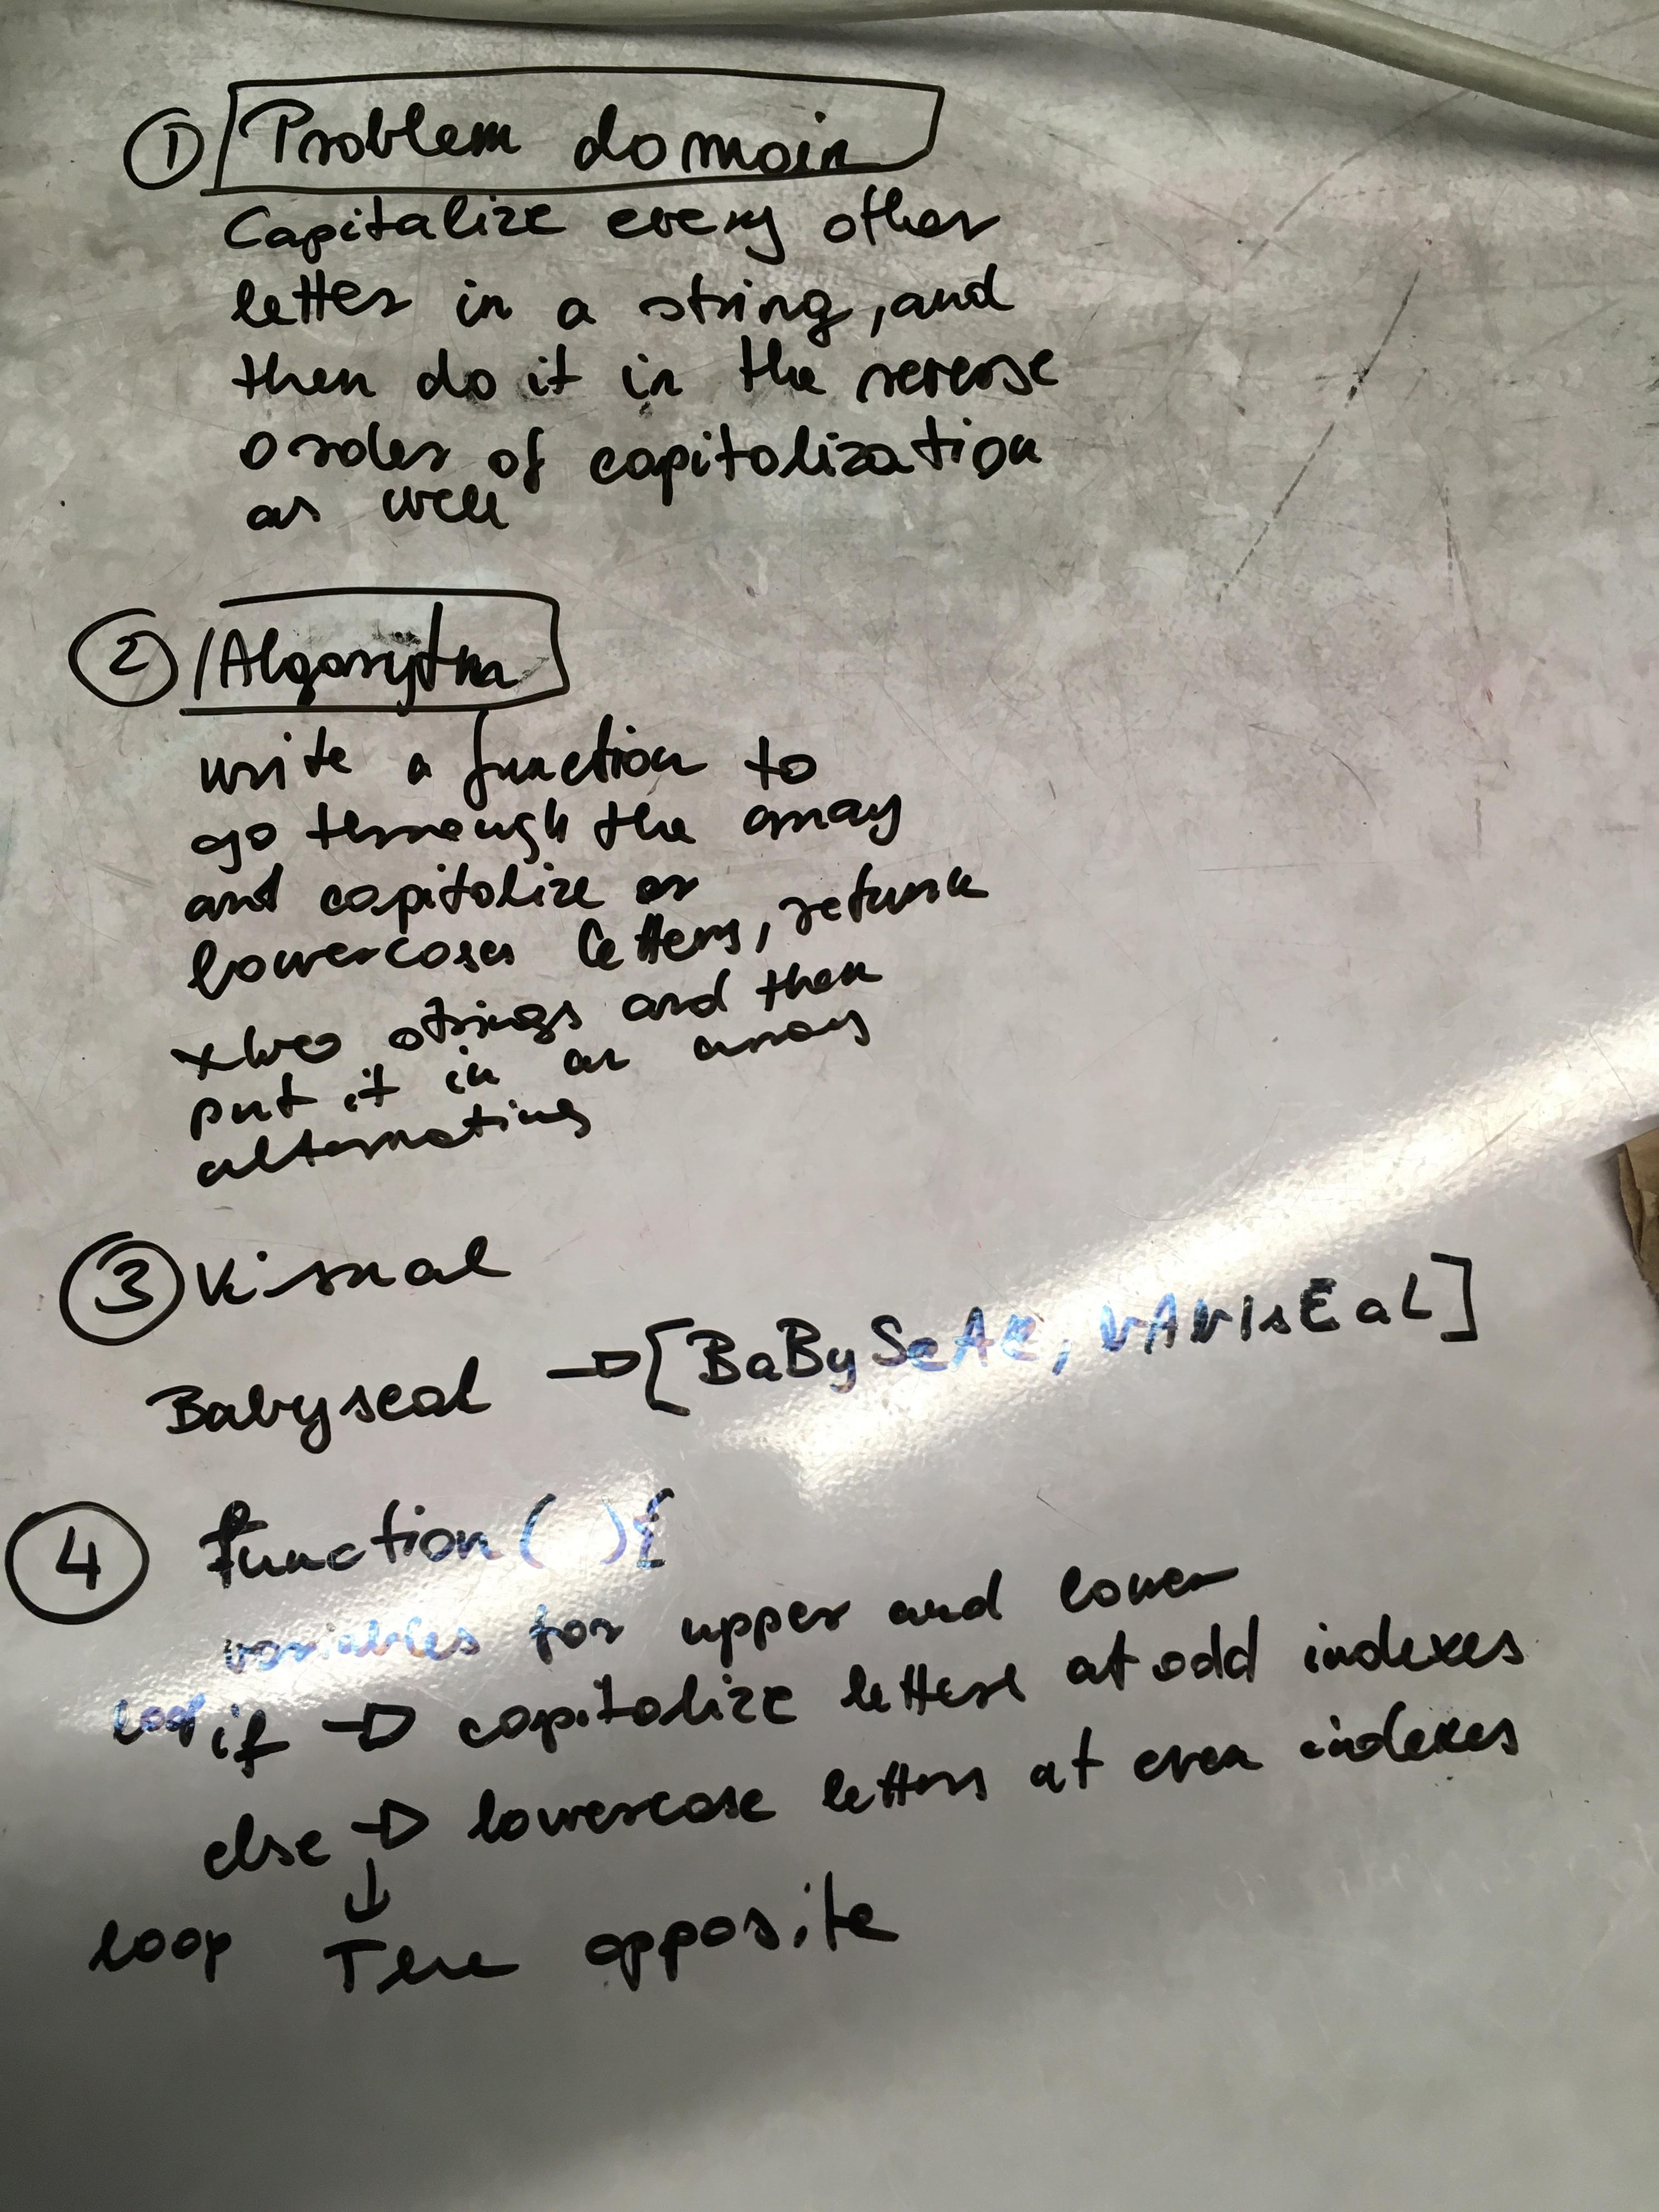 ① Problem domain
Capitalize every other
letter in a string, and
then do it in the reverse
order of capitalization
as well
② Algorytm
write a function to
go through the array
and capitolize or
lowercases letters, return
two strings and then
put it in an array
alternating
③ Visual
Babyseal → [BaBySeAL, bAbYsEaL]
④ Function ( ) {
variables for upper and lower
loop if → capitolize letters at odd indexes
else → lowercase letters at even indexes
↓
loop The opposite